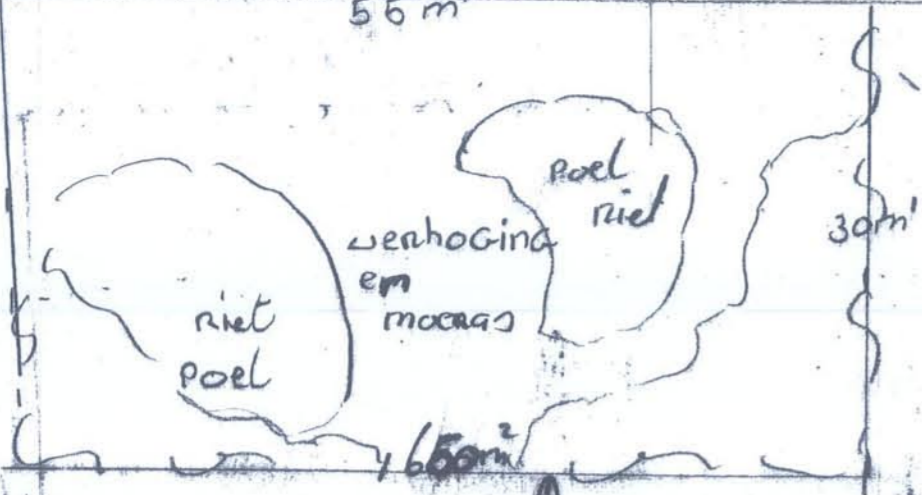 55 m
poel
riet
verhoging
em
moeras
30m'
riet
poel
1650m²